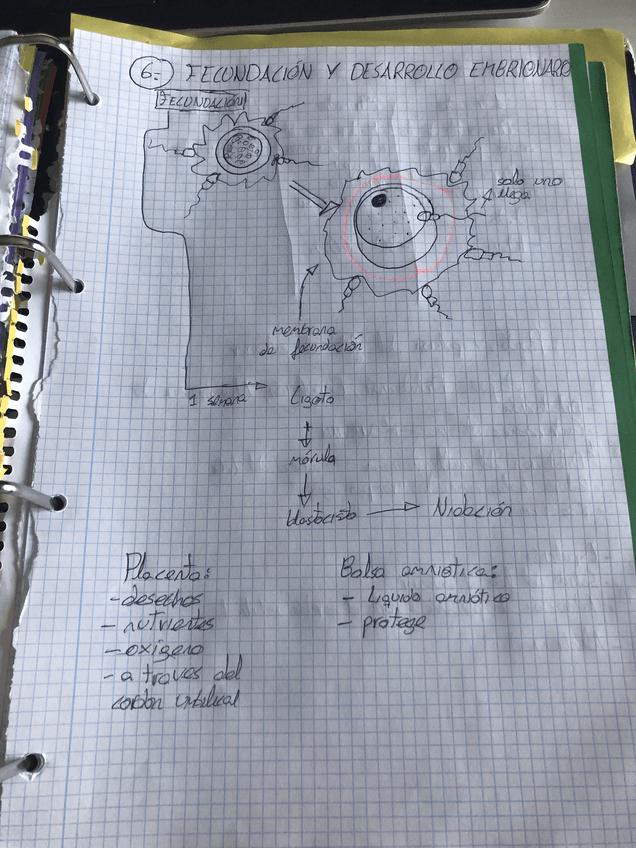 6.- FECUNDACIÓN Y DESARROLLO EMBRIONARIO
FECUNDACIÓN
solo uno
llega
membrana
de fecundación
1 semana
Zigoto
mórula
blastocisto
Nidación
Placenta:
- desechos
- nutrientes
- oxígeno
- a través del
cordón umbilical
Bolsa amniótica:
- Líquido amniótico
- protege